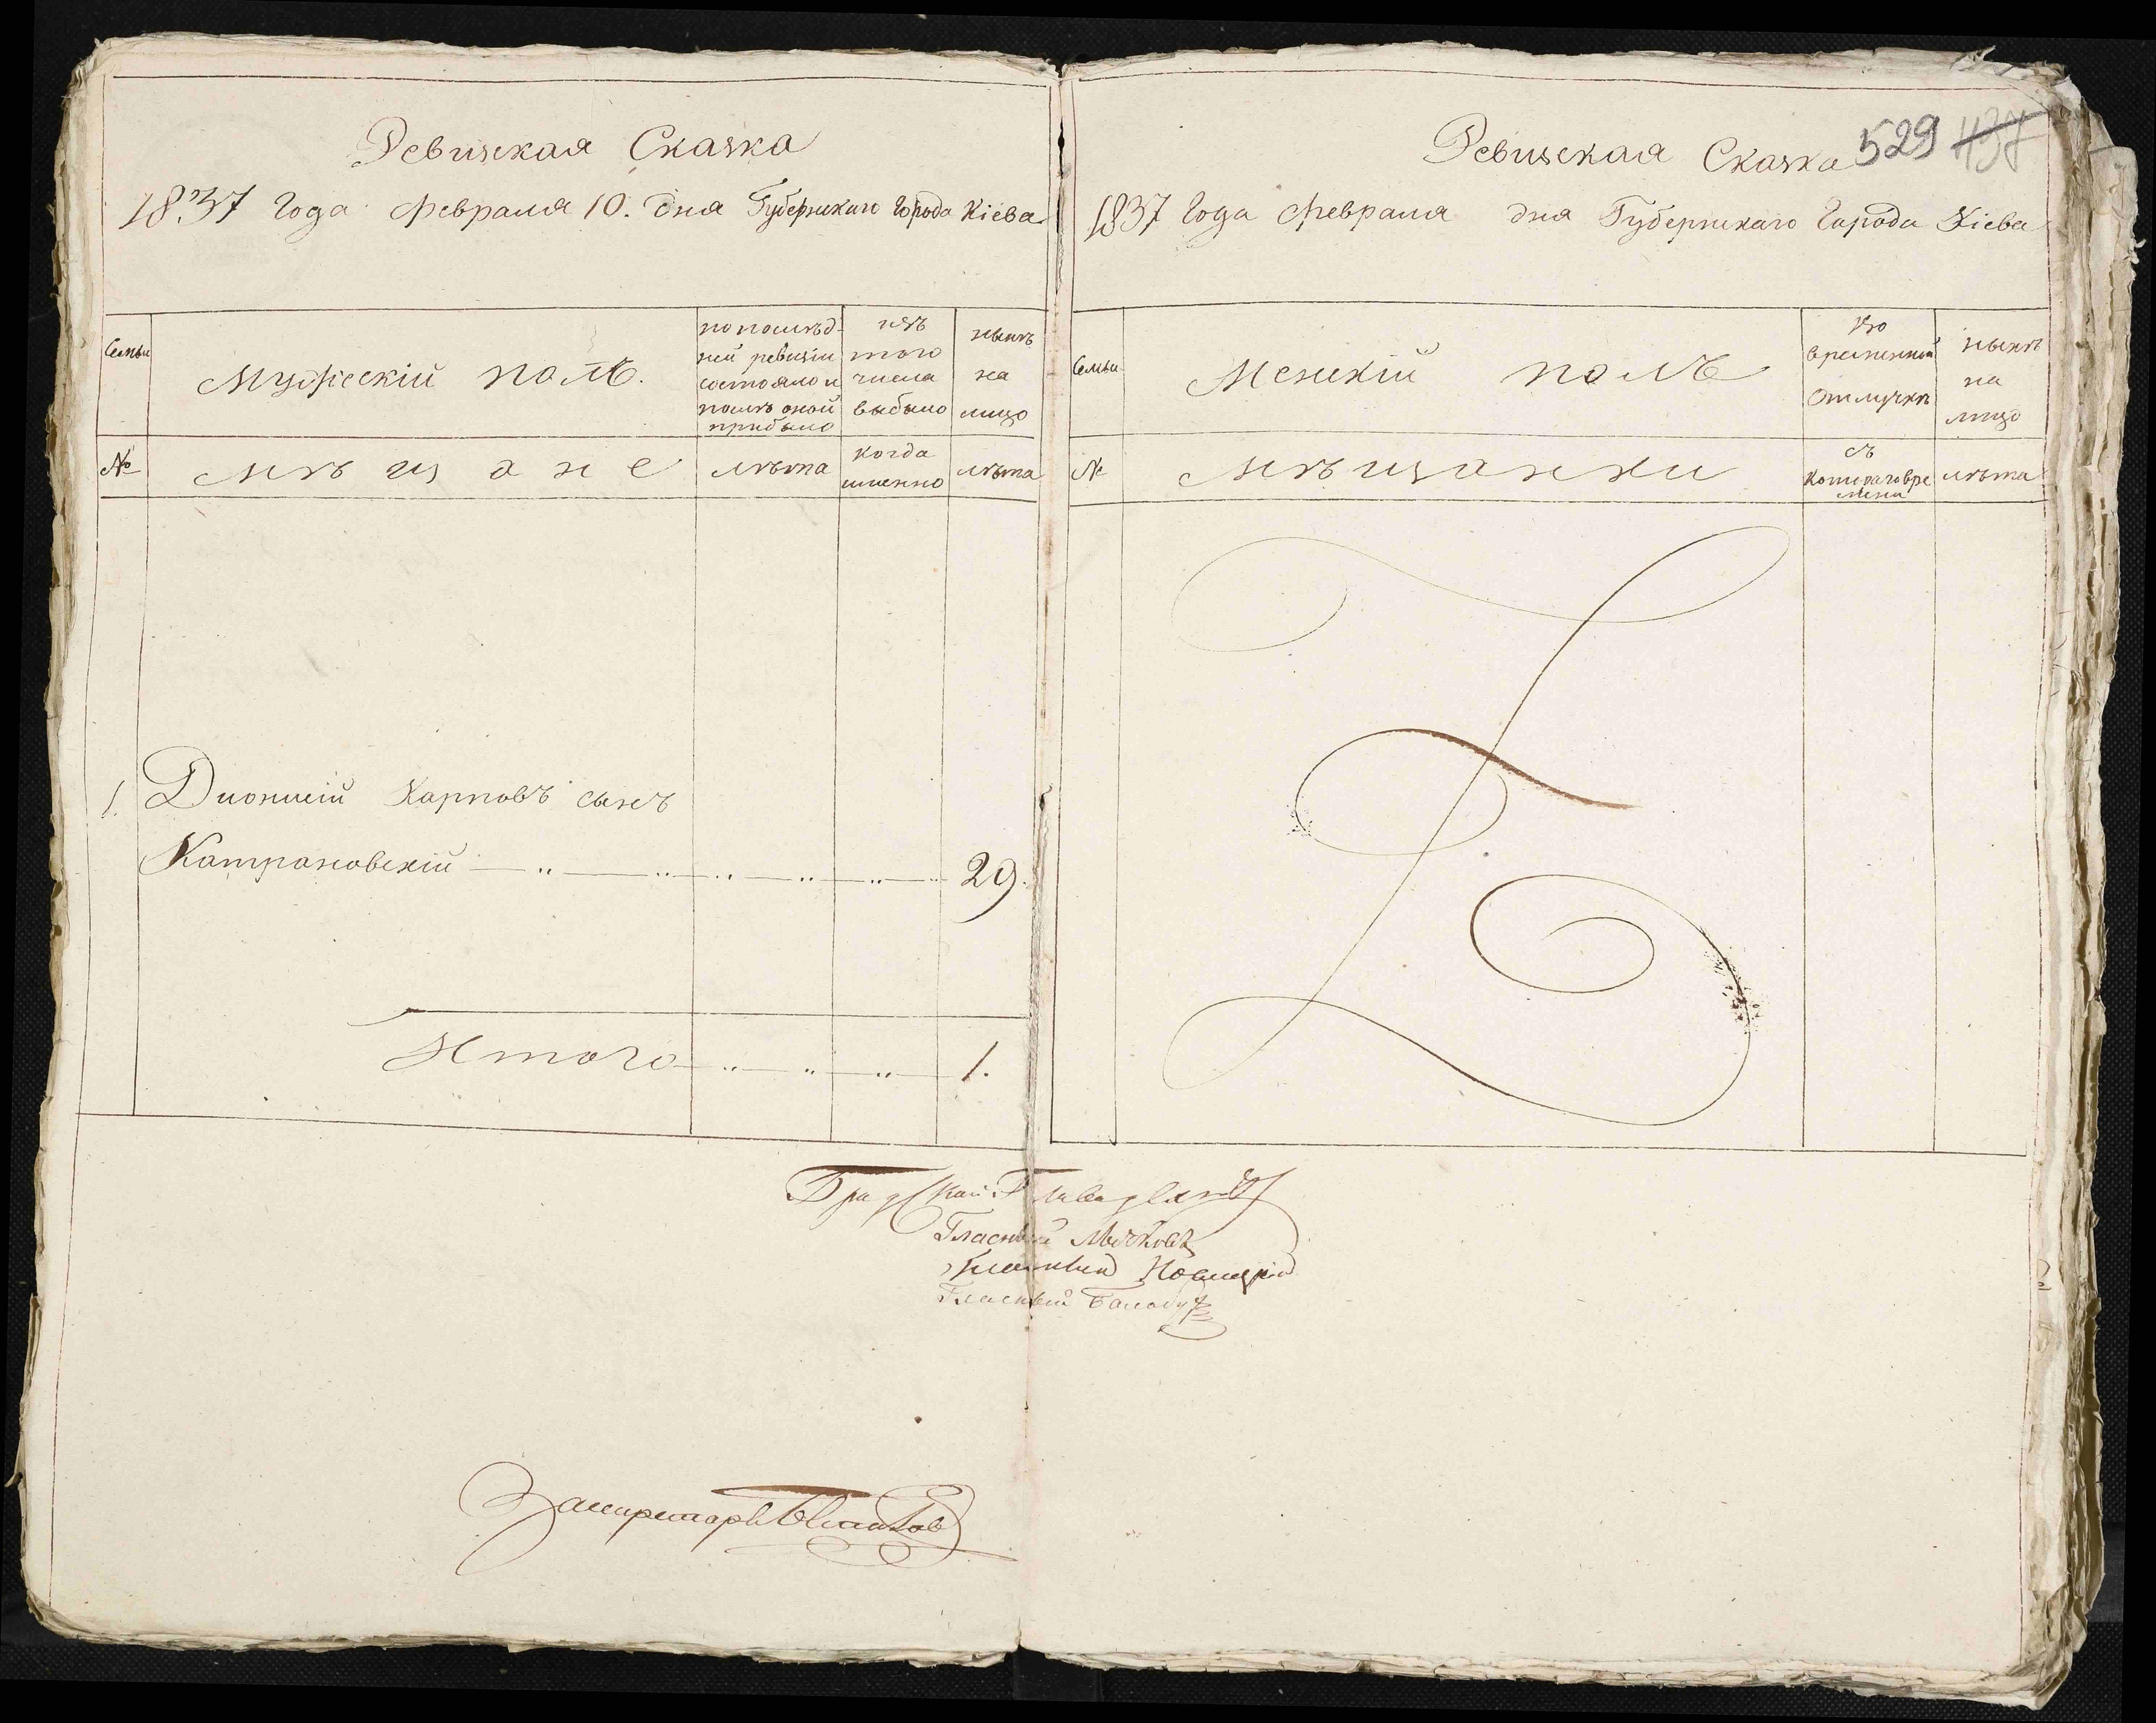 Ревизская Сказка
1837 Года Февраля 10. дня Губернскаго Города Кіева
Семьи
Мужескій полъ.
по послѣд-
ней ревизіи
состояло и
послѣ оной
прибыло
изъ
того
числа
выбыло
нынѣ
на
лицо
№
мѣщане
лѣта
когда
именно
лѣта
1. Дионисій Карповъ сынъ
Катрановскій — „ — „ — „ — „ — „ — 29.
Итого — „ — „ — „ — 1.
529 437
Ревизская Сказка
1837 Года Февраля дня Губернскаго Города Кіева
Семьи
Женскій полъ
Во
временной
отлучкѣ
нынѣ
на
лицо
№
мѣщанки
съ
котораго вре
мени
лѣта
Градскій Глава
Гласный
Гласный Новицкій
Гласный